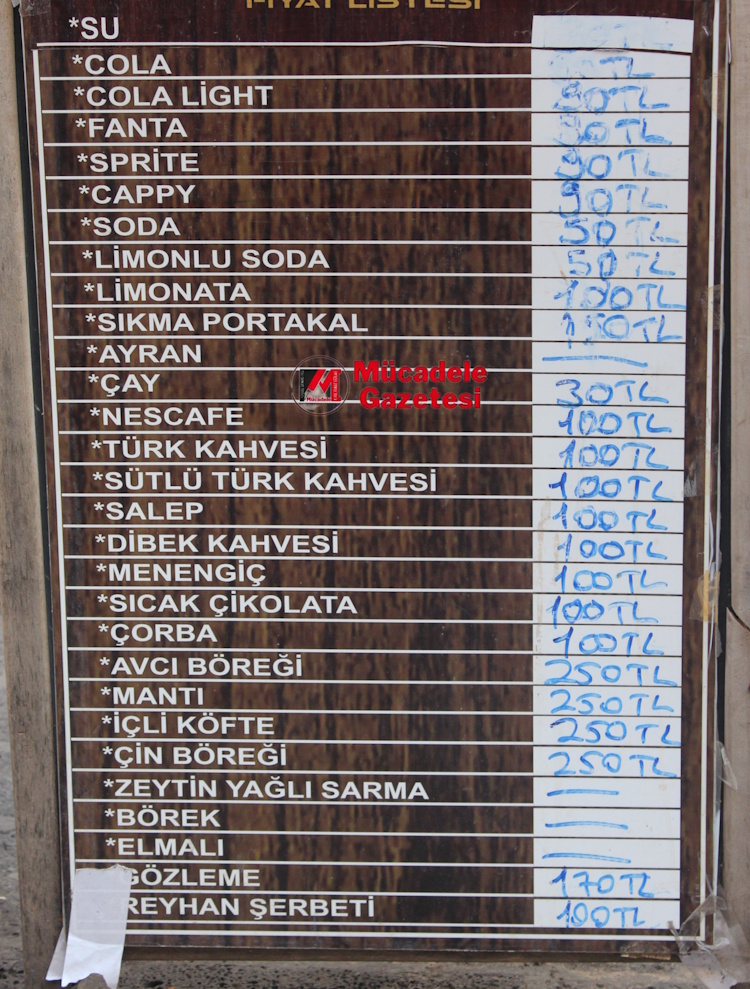 FİYAT LİSTESİ
*SU
*COLA TL
*COLA LİGHT 90TL
*FANTA 90TL
*SPRİTE 90TL
*CAPPY 90TL
*SODA 50TL
*LİMONLU SODA 50TL
*LİMONATA 100TL
*SIKMA PORTAKAL TL
*AYRAN —
*ÇAY 30TL
Mücadele
Gazetesi
*NESCAFE 100TL
*TÜRK KAHVESİ 100TL
*SÜTLÜ TÜRK KAHVESİ 100TL
*SALEP 100TL
*DİBEK KAHVESİ 100TL
*MENENGİÇ 100TL
*SICAK ÇİKOLATA 100TL
*ÇORBA 100TL
*AVCI BÖREĞİ 250TL
*MANTI 250TL
*İÇLİ KÖFTE 250TL
*ÇİN BÖREĞİ 250TL
*ZEYTİN YAĞLI SARMA —
*BÖREK —
*ELMALI —
GÖZLEME 170TL
REYHAN ŞERBETİ 100TL